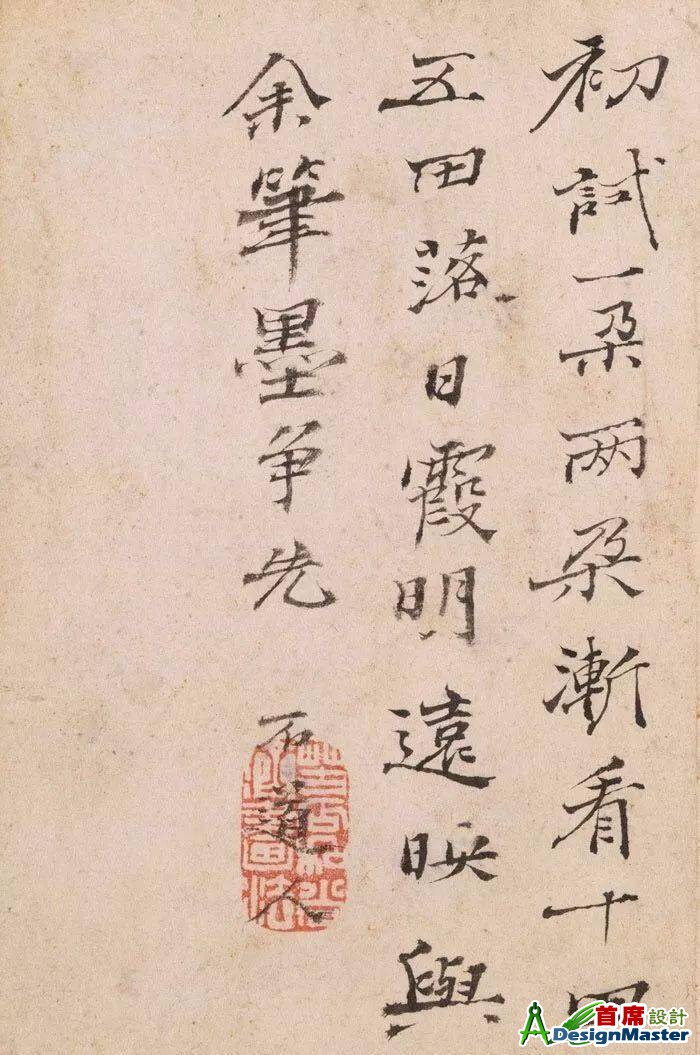 初試一朵两朵漸看十田
五田落日霞明遠映與
余筆墨争先
石道人
首席設計
ADesignMaster